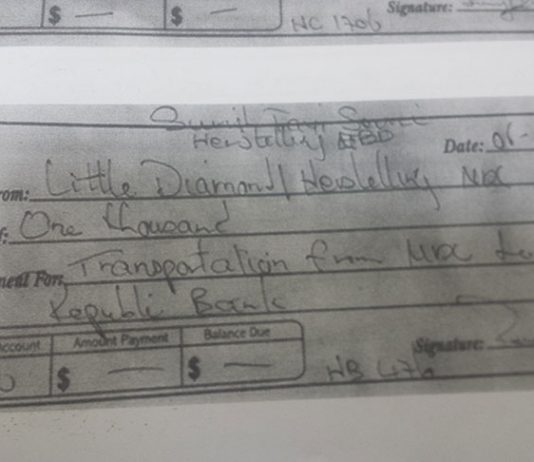 $ — $ — HC 1706 Signature:
Sunil Taxi Service
Herstelling EBD
Date: 06-
rom: Little Diamond/Herstelling Nrx
f: One thousand
ment For: Transportation from Nrx to
Republic Bank
ccount Amount Payment Balance Due
$ — $ — HB 476 Signature: